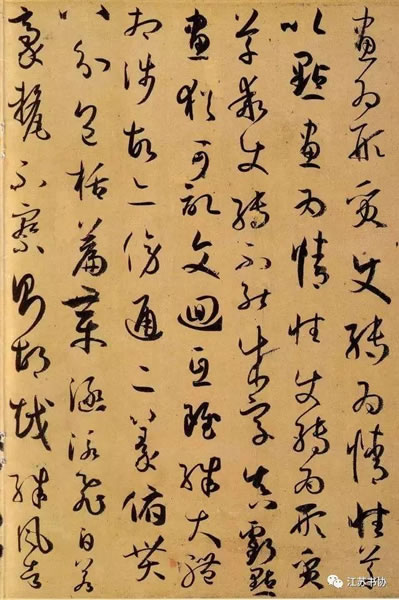 畫為形質使轉為情性草
以點畫為情性使轉為形質
草乖使轉不能成字真虧點
畫猶可記文迴互雖殊大體
相涉故亦傍通二篆俯貫
八分包括篇章涵泳飛白若
豪氂不察則胡越殊風者
江苏书协